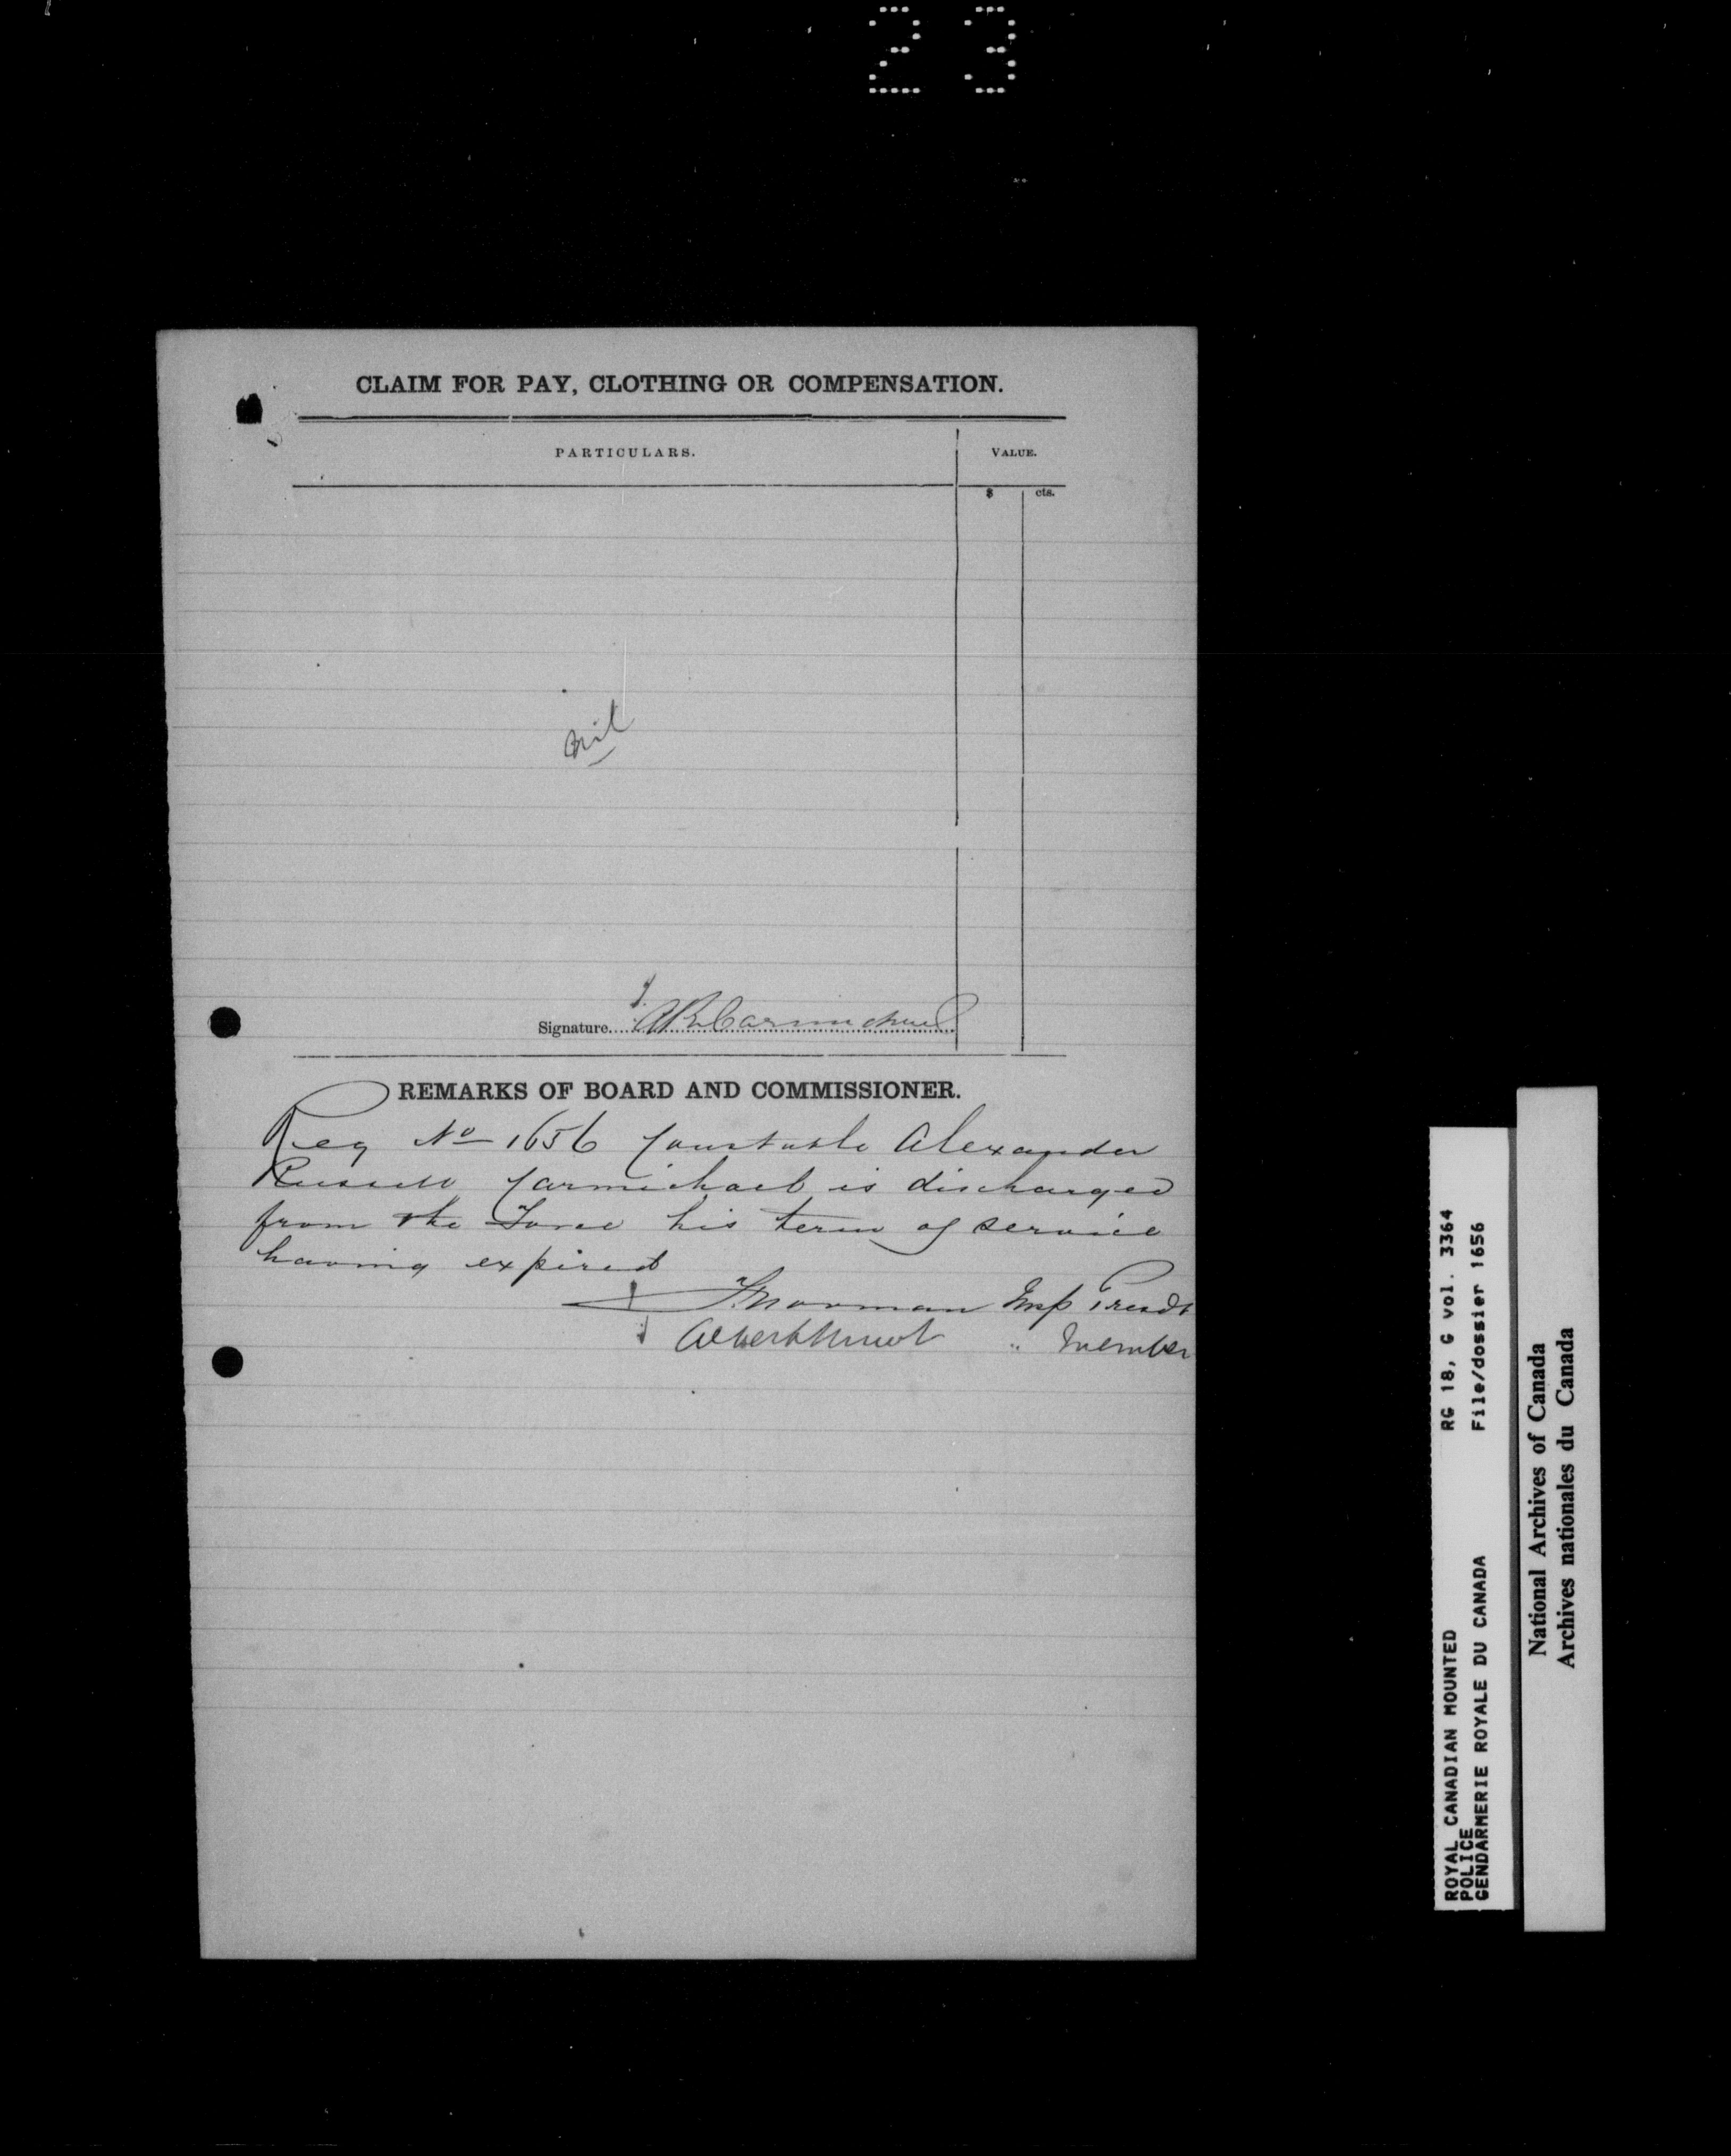 23
CLAIM FOR PAY, CLOTHING OR COMPENSATION.
PARTICULARS.
VALUE.
$ cts.
nil
Signature A R Carmichael
REMARKS OF BOARD AND COMMISSIONER.
Reg No 1656 Constable Alexander
Russell Carmichael is discharged
from the Force his term of service
having expired
F Norman Insp Presdt
Albert " Member
ROYAL CANADIAN MOUNTED RG 18, G vol. 3364
POLICE
GENDARMERIE ROYALE DU CANADA File/dossier 1656
National Archives of Canada
Archives nationales du Canada